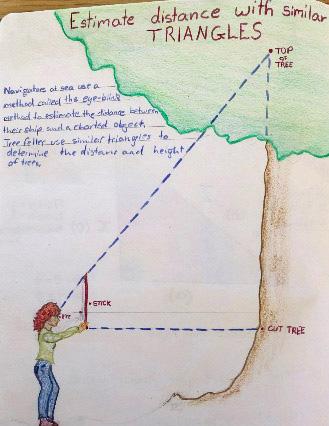 Estimate distance with similar
TRIANGLES
TOP
OF
TREE
Navigators at sea use a
method called the eye-blink
method to estimate the distance between
their ship and a charted object.
Tree feller use similar triangles to
determine the distance and height
of trees.
EYE
STICK
CUT TREE